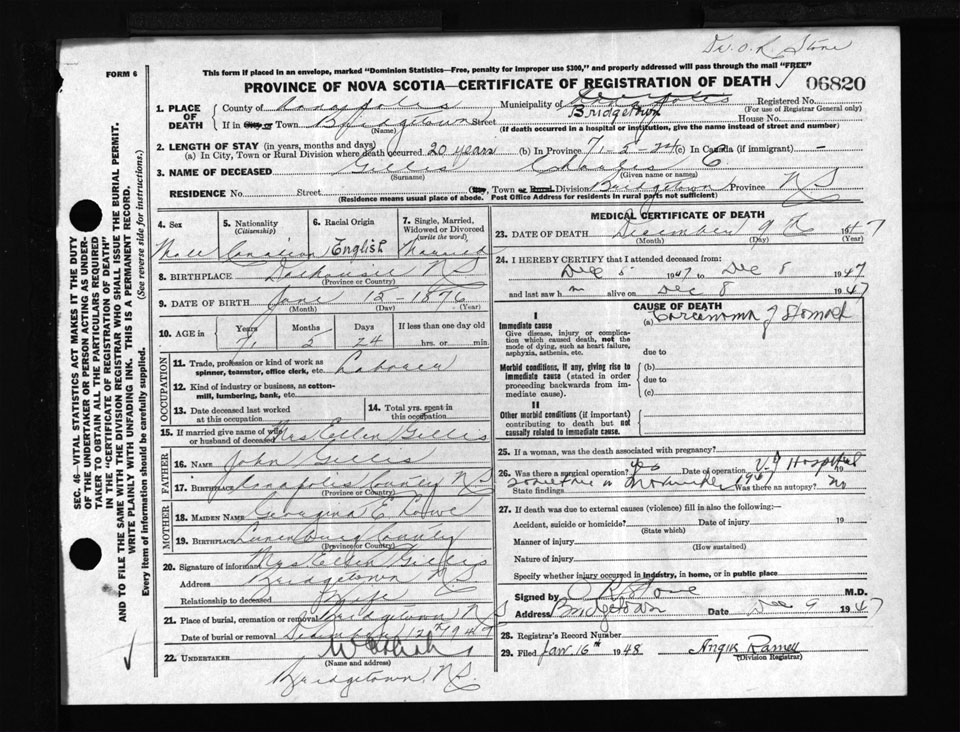 Dr. O. R. Stone
FORM 6
This form if placed in an envelope, marked "Dominion Statistics—Free, penalty for improper use $300," and properly addressed will pass through the mail "FREE"
PROVINCE OF NOVA SCOTIA—CERTIFICATE OF REGISTRATION OF DEATH
06820
1. PLACE OF DEATH
County of Annapolis Municipality of Registered No.
Bridgetown (For use of Registrar General only)
If in City or Town Bridgetown Street House No.
(Name) (If death occurred in a hospital or institution, give the name instead of street and number)
2. LENGTH OF STAY (in years, months and days)
(a) In City, Town or Rural Division where death occurred 20 years (b) In Province 71-5-24 (c) In Canada (if immigrant) -
3. NAME OF DECEASED Gillis Charles E
(Surname) (Given name or names)
RESIDENCE No. Street (City, Town or Rural) Division Bridgetown Province NS
(Residence means usual place of abode. Post Office Address for residents in rural parts not sufficient)
4. Sex
Male
5. Nationality
(Citizenship)
Canadian
6. Racial Origin
English
7. Single, Married, Widowed or Divorced
(write the word)
Married
8. BIRTHPLACE Dalhousie NS
(Province or Country)
9. DATE OF BIRTH June 12 - 1876
(Month) (Day) (Year)
10. AGE in Years Months Days If less than one day old
71 5 24 hrs. or min.
OCCUPATION
11. Trade, profession or kind of work as
spinner, teamster, office clerk, etc. Laborer
12. Kind of industry or business, as cotton-
mill, lumbering, bank, etc.
13. Date deceased last worked
at this occupation
14. Total yrs. spent in
this occupation
15. If married give name of wife
or husband of deceased Mrs Ellen Gillis
FATHER
16. NAME John Gillis
17. BIRTHPLACE Annapolis County NS
(Province or Country)
MOTHER
18. MAIDEN NAME Georgina E. Lowe
19. BIRTHPLACE Lunenburg County
(Province or Country)
20. Signature of informant Mrs Ellen Gillis
Address Bridgetown NS
Relationship to deceased Wife
21. Place of burial, cremation or removal Bridgetown NS
Date of burial or removal December 12th 1947
22. UNDERTAKER
(Name and address)
Bridgetown, NS
MEDICAL CERTIFICATE OF DEATH
23. DATE OF DEATH December 9th 1947
(Month) (Day) (Year)
24. I HEREBY CERTIFY that I attended deceased from:
Dec 5 1947 to Dec 8 1947
and last saw h m alive on Dec 8 1947
CAUSE OF DEATH
I
Immediate cause (a) Carcinoma of Stomach
Give disease, injury or complica-
tion which caused death, not the
mode of dying, such as heart failure,
asphyxia, asthenia, etc. due to
Morbid conditions, if any, giving rise to (b)
immediate cause (stated in order due to
proceeding backwards from im-
mediate cause). (c)
II
Other morbid conditions (if important)
contributing to death but not
causally related to immediate cause.
25. If a woman, was the death associated with pregnancy?
26. Was there a surgical operation? yes Date of operation V. G Hospital 19
sometime in November 1947
State findings Was there an autopsy? no
27. If death was due to external causes (violence) fill in also the following:—
Accident, suicide or homicide? Date of injury 19
(State which)
Manner of injury
(How sustained)
Nature of injury
Specify whether injury occurred in industry, in home, or in public place
Signed by O R Stone M.D.
Address Bridgetown Date Dec 9 1947
28. Registrar's Record Number
29. Filed Jan. 16th 1948
(Division Registrar)
SEC. 46—VITAL STATISTICS ACT MAKES IT THE DUTY
OF THE UNDERTAKER OR PERSON ACTING AS UNDER-
TAKER TO OBTAIN ALL THE PARTICULARS REQUIRED
IN THE "CERTIFICATE OF REGISTRATION OF DEATH"
AND TO FILE THE SAME WITH THE DIVISION REGISTRAR WHO SHALL ISSUE THE BURIAL PERMIT.
WRITE PLAINLY WITH UNFADING INK. THIS IS A PERMANENT RECORD.
Every item of information should be carefully supplied. (See reverse side for instructions.)